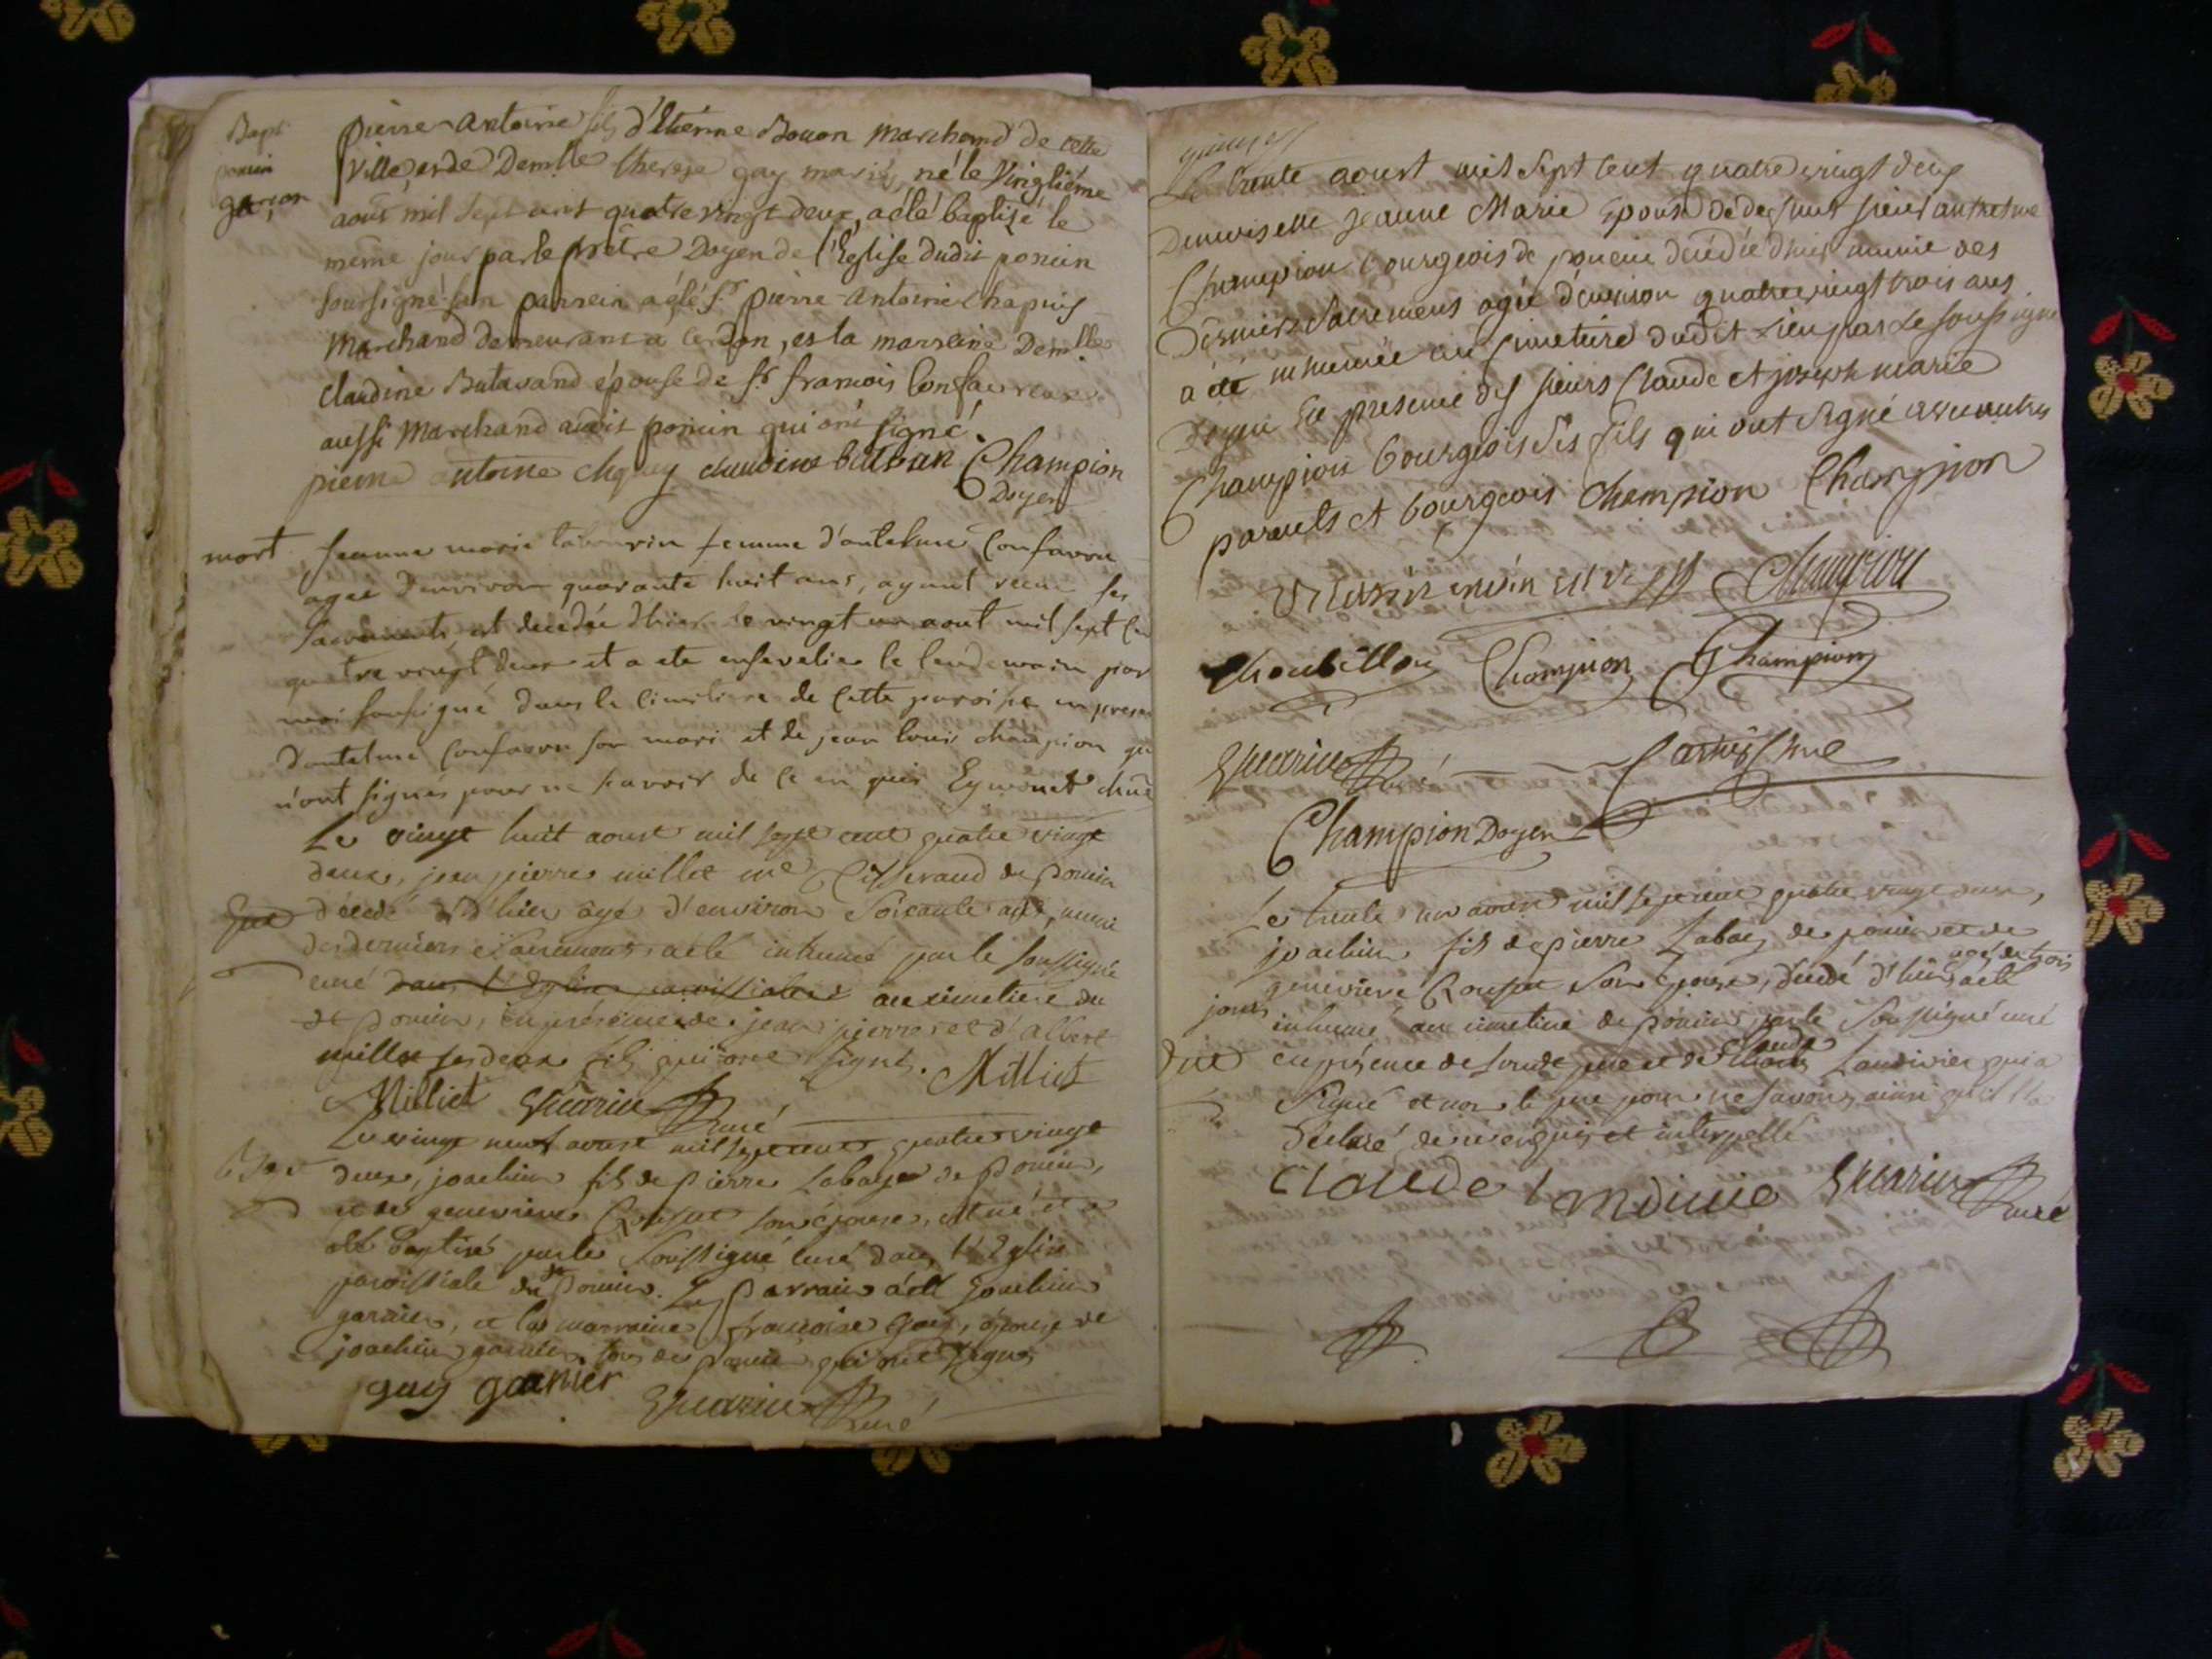 Bapt
poncin
garçon
pierre-antoine fils d'Etienne Bouon marchand de cette
ville, et de Demlle therese gay mariés, né le vingtiéme
aout mil sept cent quatre vingt deux, a été baptizé le
même jour par le prêtre Doyen de l'Eglise dudit poncin
soussigné son parrein a été sr. pierre-antoine chapuis
marchand demeurant a cerdon, et la marreine Demlle
claudine Batavand épouse de sr françois
aussi marchand audit poncin qui ont signé.
pierre antoine claudine Champion
Doyen
mort
Jeanne marie femme d'antelme Confavre
agée d'environ quarante huit ans, ayant recu ses
sacrements est decedée d'hier le vingt un aout mil sept
quatre vingt deux et a ete ensevelie le lendemain par
moi soussigné dans le cimitiere de cette paroisse en
d'antelme Confavre son mari et de jean louis champion
n'ont signés pour ne savoir de ce enquis Eymonet
Le vingt huit aoust mil sept cent quatre vingt
deux, jean pierre millet me Tisserand de Poncin
décédé d'hier âgé d'environ soixante ans, muni
des derniers sacremens, a été inhumé par le soussigné
curé dans l'Eglise paroissiale au cimetiere du
de Poncin, en présence de jean pierre et d'albert
millet ses deux fils qui ont signé. Milliet
Milliet curé
Le vingt neuf aoust mil sept cent quatre vingt
deux, joachim fils de pierre Labaye de Poncin,
et de genevieve son épouse, est né et a
été baptisé par le soussigné curé dans l'Eglise
paroissiale de Poncin. Le Parrain a été joachim
garnier, et la marraine françoise Guy, épouse de
joachim garnier tous de poncin qui ont signé
guy garnier
curé
Le trente aoust mil sept cent quatre vingt deux
Demoiselle jeanne Marie épouse de deffunt sieur antelme
Champion bourgeois de poncin décédée d'hier munie des
derniers sacremens agée d'environ quatrevingt trois ans
a été inhumée au cimetiere dudit lieu par le soussigné
Doyen En presence des sieurs Claude et joseph marie
Champion bourgeois ses fils qui ont signé avec autres
parents et bourgeois Champion Champion
Champion
Champion Champion
curé
Champion Doyen
Le trente un aoust mil sept cent quatre vingt deux,
joachim fils de pierre Labaye de poncin et de
genevieve son épouse, décédé d'hier, agé de trois
jours a été
inhumé au cimetiere de poncin par le soussigné curé
en présence de pere et de claude Landivier qui a
signé et non le pere pour ne savoir, ainsi qu'il l'a
déclaré de ce enquis et interpellé
claude curé